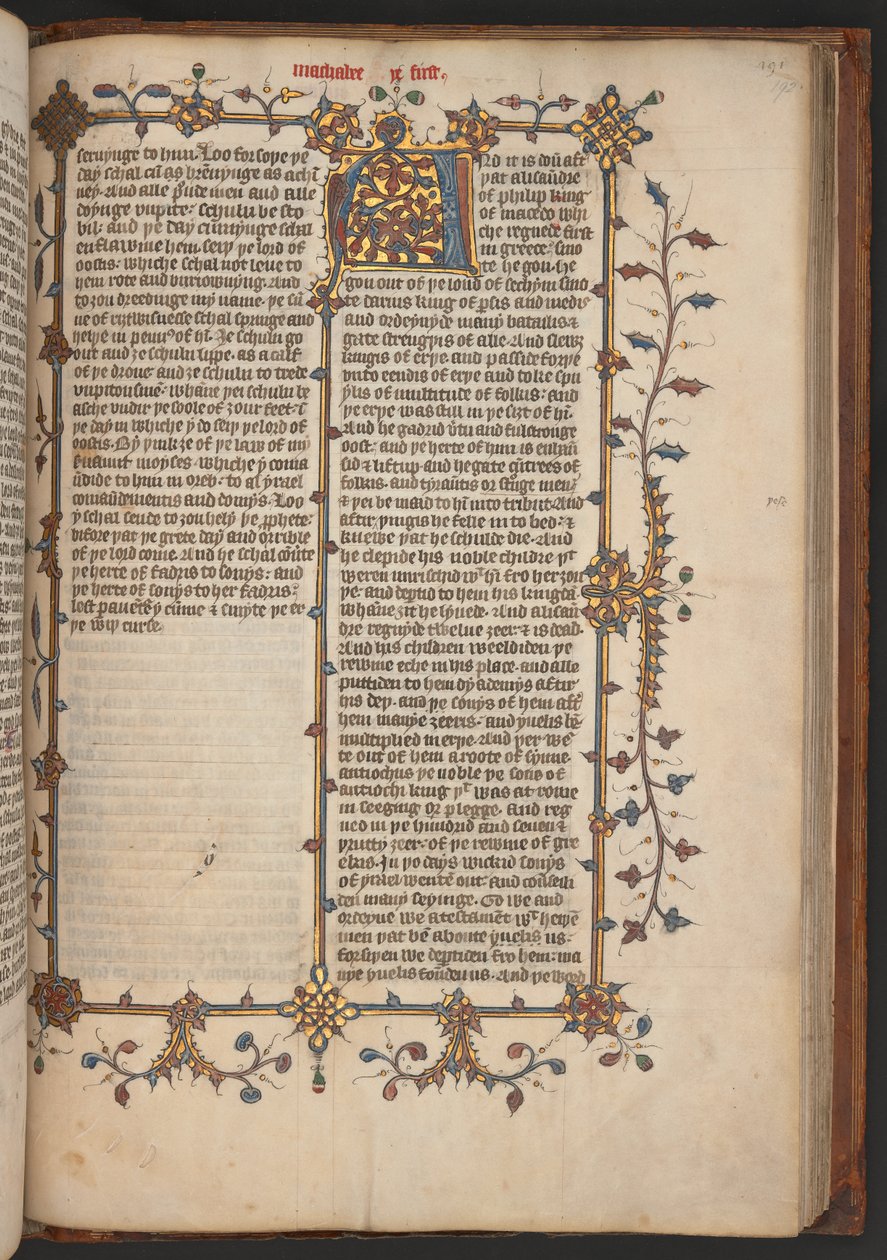 machabe þe first.
191
192
seruynge to him. Loo forsoþe þe
day schal cū as brēnynge as achi
ney. And alle ꝓude men and alle
doynge vnpite: schulu be sto
bil. and þe day cūmynge schal
enflawme hem. seiþ þe lord of
oostis. whiche schal not leue to
hem rote and buriownyng. And
to ȝou dreedinge my name. þe sū
ne of riȝtwisnesse schal springe and
helþe in pennꝰ of hī. Ȝe schulu go
out and ȝe schulu lippe. as a calf
of þe droue. and ȝe schulu to trede
vnpitousmē. whāne þei schulu be
asche vndir þe soole of ȝour feet. ī
þe day in whiche y do seiþ þe lord of
oostis. By þinkȝe of þe law of my
ẜuaunt moyses. whiche y coma
ūdide to him in oreb. to al yrael
comaūdementis and domys. Loo
y schal sende to ȝou hely þe ꝓphete.
bifore þat þe grete day and orrible
of þe lord come. And he schal cōūte
þe herte of fadris to sonys: and
þe herte of sonys to her fadris:
lest paūeture y cūme & smyte þe er
þe wiþ curse.
And it is dou aft
þat alisaūdre
of philip king
of macedo whi
che regnede first
in greece. smo
te he gou. he
gou out of þe lond of sechym smo
te darius king of ꝑsis and medis
and ordeynyde many batailis &
gate strengþis of alle. And slewȝ
kingis of erþe. and passide forþe
vnto eendis of erþe and toke spu
ylis of multitude of folkis: and
þe erþe was still in þe siȝt of hī.
And he gadrid vtu and ful stronge
oost: and þe herte of him is enhau
sid & liftup. and he gate cūtrees of
folkis. and tyraūtis or strige men
& þei be maad to hī into tribut. And
aftir þingis he felle in to bed: &
knewe þat he schulde die. And
he clepide his noble childre þͭ
weren nurischid wͭ hī fro her ȝou
þe: and deptid to hem his kingdā
whāne ȝit he lyuede. And alicaū
dre regnyde twelue ȝeer: & is dead.
And his children weeldiden þe
rewme eche in his place. and alle
puttiden to hem dyademys aftir
his deþ. and þe sonys of hem aftꝰ
hem manye ȝeeris. and yuelis bē
multiplied in erþe. And þer wē
te out of hem a roote of synne.
antiochus þe noble þe sone of
antiochi king þͭ was at rome
in seeging or plegge. And reg
ned in þe hundrid and seuen &
þritty ȝeer. of þe rewme of gre
ekis. In þo days wickid sonys
of yrael wentē out. and coūseili
den many seyinge. Go we and
ordeyne we a testamēt wͭ heþē
men þat bē aboute yuelis us.
forsiþen we deptiden fro hem: ma
nye yuelis foūden us. And þe word